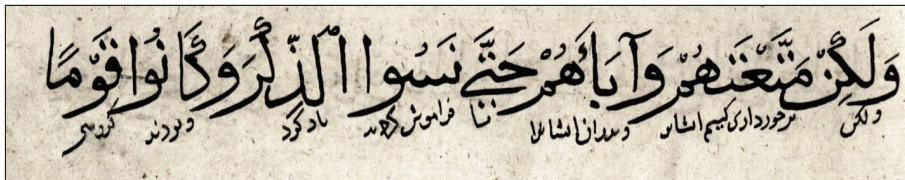 وَلَكِنْ مَتَّعْتَهُمْ وَآبَاءَهُمْ حَتَّى نَسُوا الذِّكْرَ وَكَانُوا قَوْمًا
ولكن برخورداری ایشانرا تا فراموش کردند یاد کرد وبودند گروهی